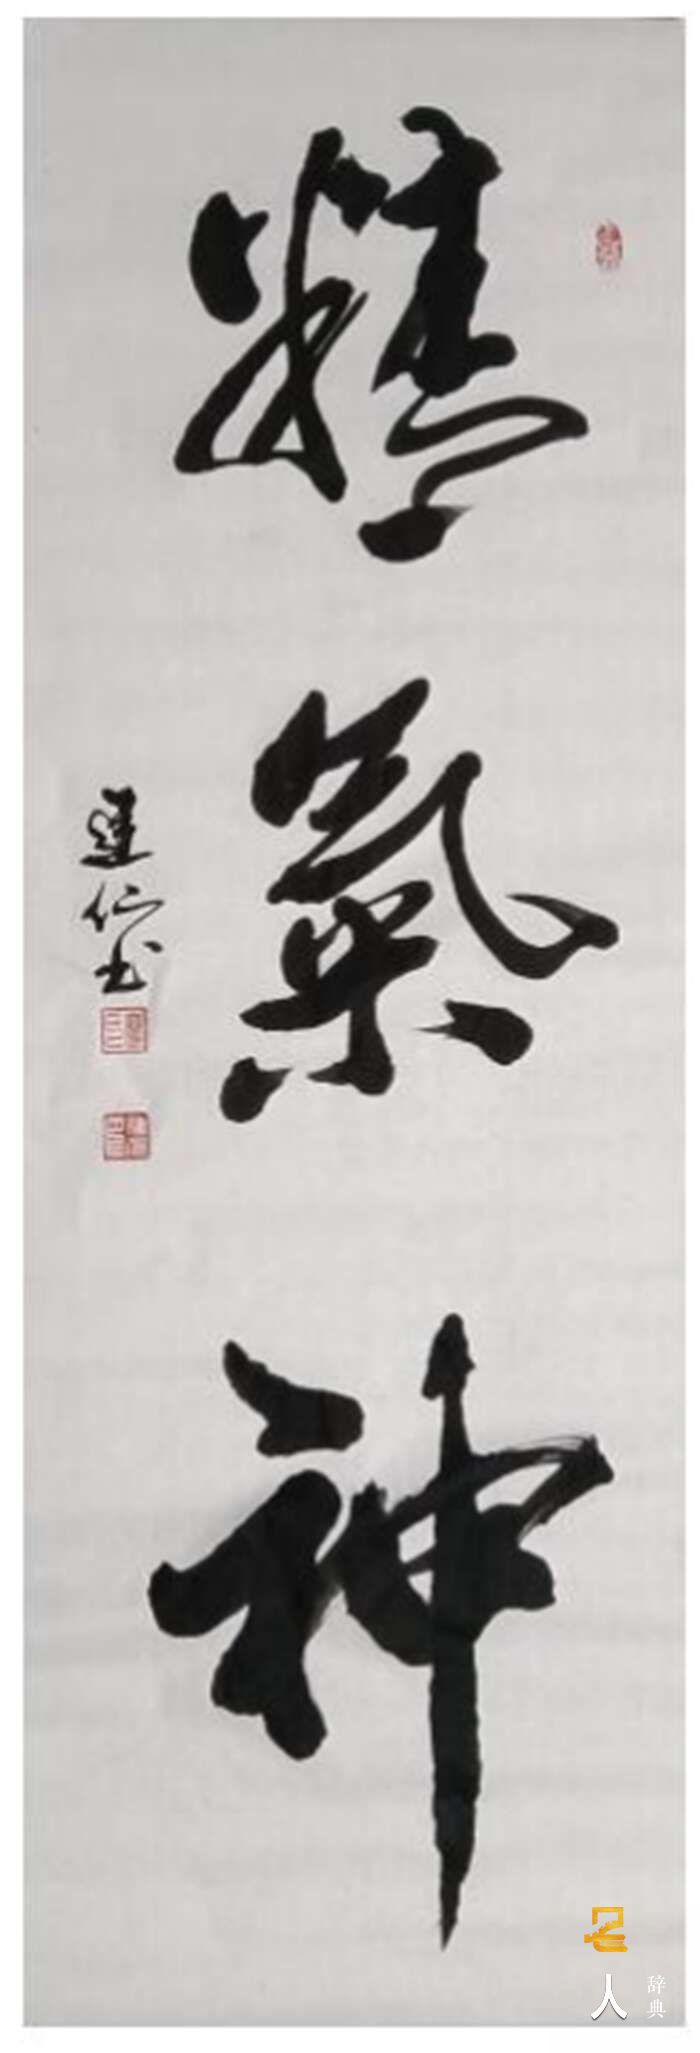 精氣神
建仁書
名人
辞典